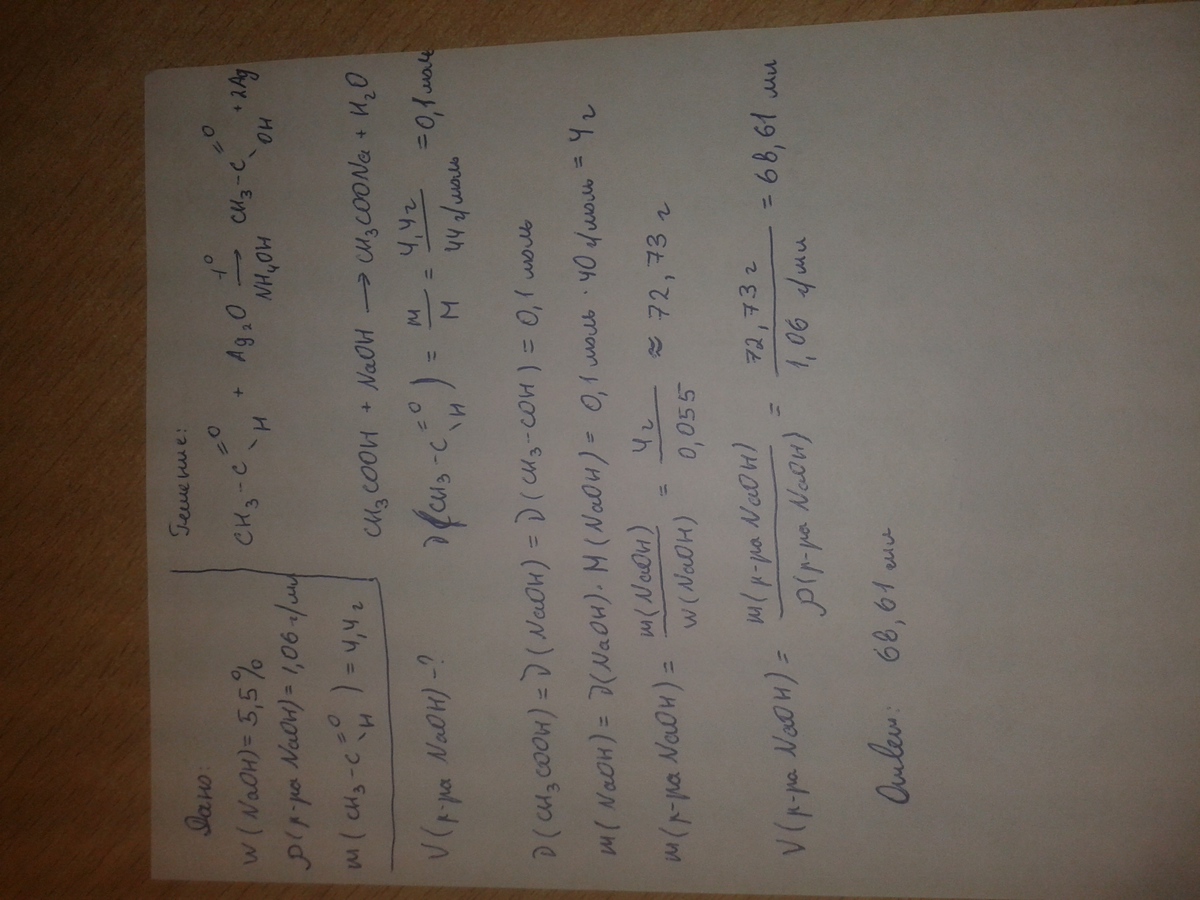 Дано:
W(NaOH) = 5,5%
ρ(р-ра NaOH) = 1,06 г/мл
m(CH₃-C=O\H) = 4,4 г
V(р-ра NaOH) - ?
Решение:
CH₃-C=O\H + Ag₂O t° → NH₄OH CH₃-C=O\OH + 2Ag
CH₃COOH + NaOH → CH₃COONa + H₂O
ν(CH₃-C=O\H) = m/M = 4,4г/44 г/моль = 0,1 моль
ν(CH₃COOH) = ν(NaOH) = ν(CH₃-COH) = 0,1 моль
m(NaOH) = ν(NaOH) · M(NaOH) = 0,1 моль · 40 г/моль = 4 г
m(р-ра NaOH) = m(NaOH)/W(NaOH) = 4г/0,055 ≈ 72,73 г
V(р-ра NaOH) = m(р-ра NaOH)/ρ(р-ра NaOH) = 72,73 г/1,06 г/мл = 68,61 мл
Ответ: 68,61 мл